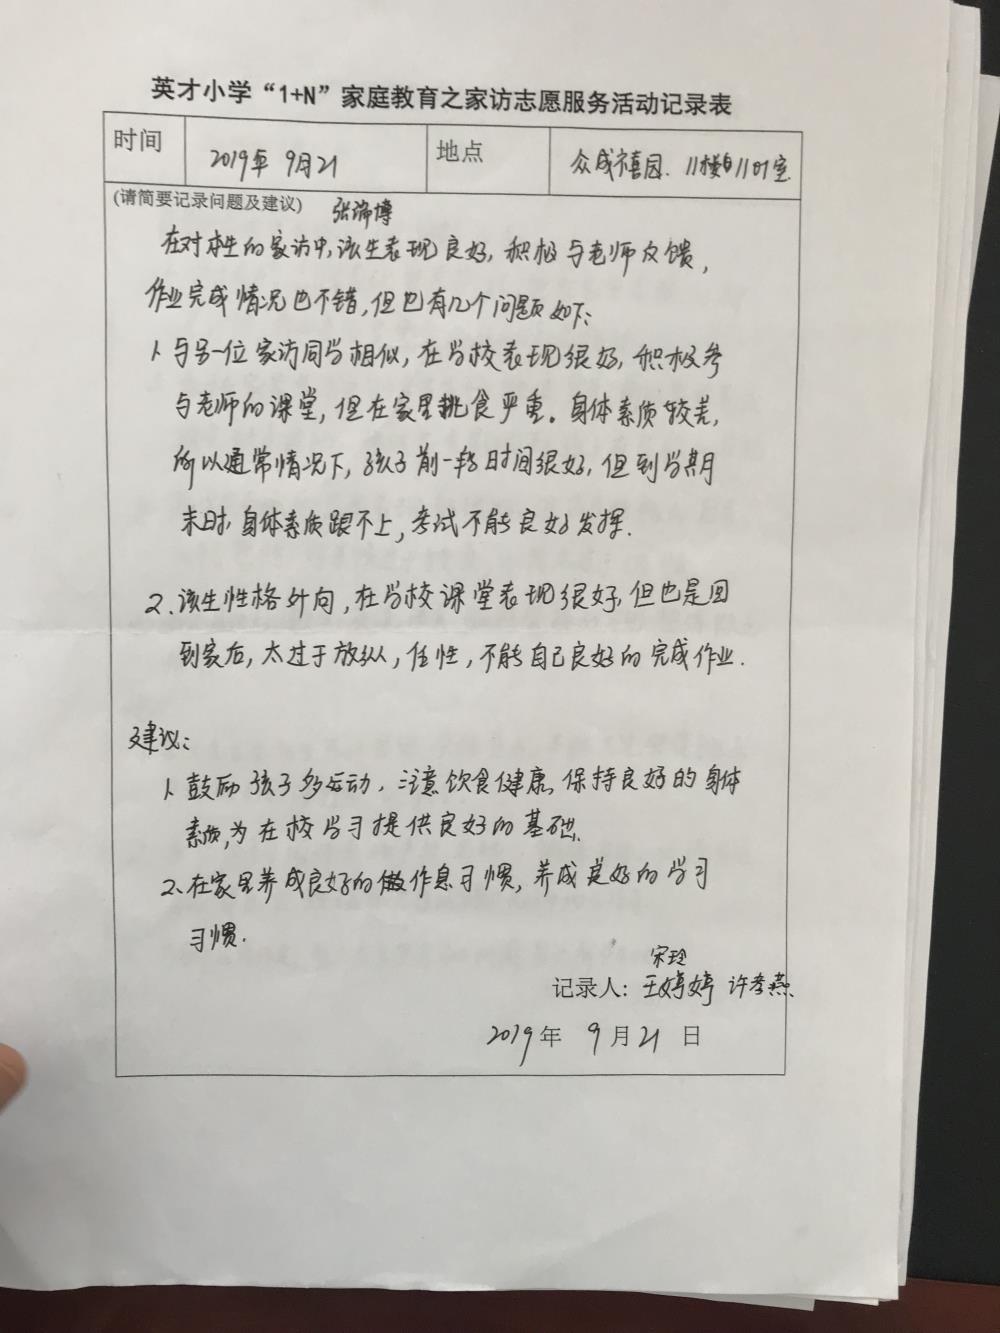 英才小学“1+N”家庭教育之家访志愿服务活动记录表
时间 2019年 9月21 地点 众成禧园. 11楼1101室.
(请简要记录问题及建议) 张沛博
在对本生的家访中,该生表现良好,积极与老师反馈,
作业完成情况也不错,但也有几个问题如下:
1、与另一位家访同学相似,在学校表现很好,积极参
与老师的课堂,但在家里挑食严重。身体素质较差,
所以通常情况下,孩子前一段时间很好,但到学期
末时,身体素质跟不上,考试不能良好发挥.
2、该生性格外向,在学校课堂表现很好,但也是回
到家后,太过于放纵,任性,不能自己良好的完成作业.
建议:
1、鼓励孩子多运动,注意饮食健康,保持良好的身体
素质,为在校学习提供良好的基础.
2、在家里养成良好的作息习惯,养成良好的学习
习惯.
宋玲
记录人: 王婷婷 许孝燕
2019年 9月21日